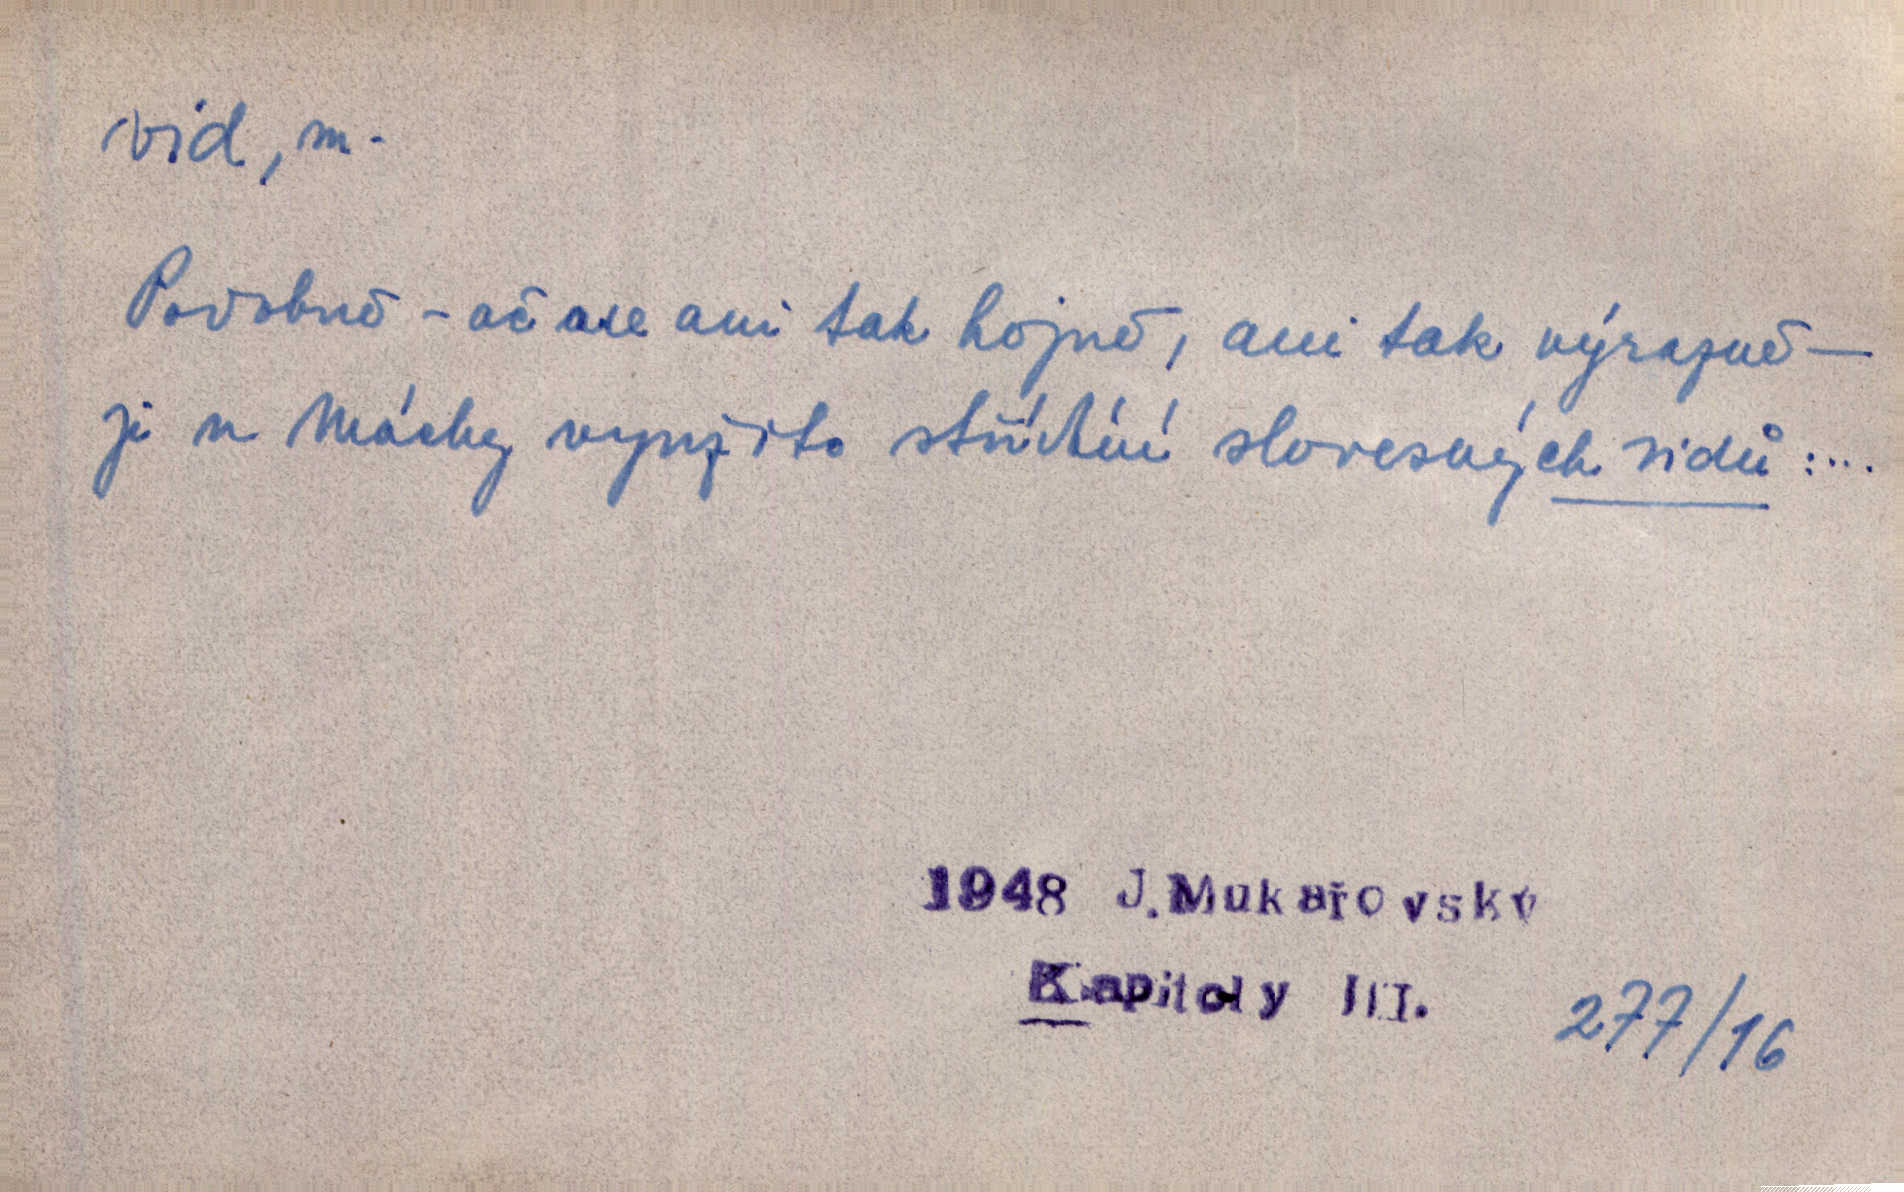 vid, m.
Podobně – ač ne ani tak hojně, ani tak výrazně –
je u Máchy využito střídání slovesných vidů : ...
1948 J. Mukařovský
Kapitoly III.
277/16